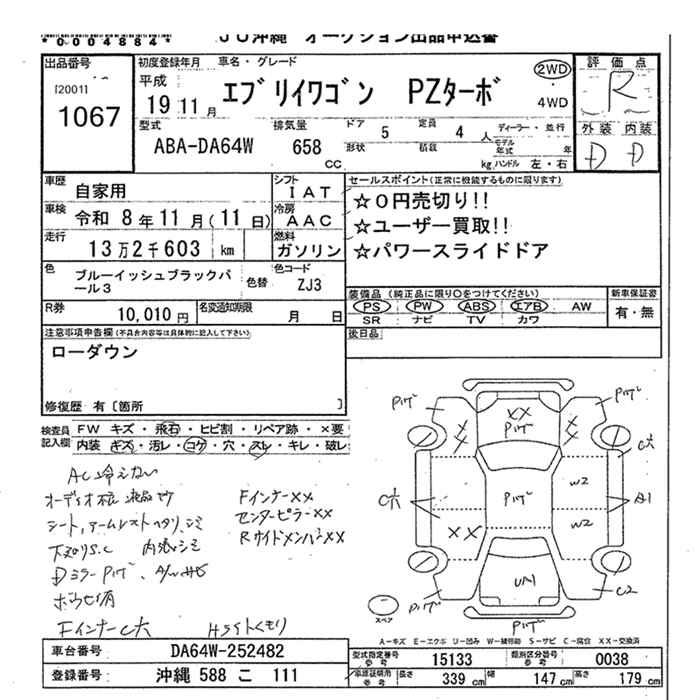 *0004884*
JU沖縄 オークション出品申込書
出品番号
[2001]
1067
初度登録年月
平成
19 11 月
車名・グレード
エブリイワゴン PZターボ
2WD
4WD
評価点
R
外装 内装
D D
型式
ABA-DA64W
排気量
658
cc
ドア
5
形状
定員
4 人
積載
kg
ディーラー・並行
モデル年式 年
ハンドル 左・右
車歴
自家用
車検
令和 8 年 11 月(11 日)
走行
13 万 2 千 603 km
シフト
IAT
冷房
AAC
燃料
ガソリン
色
ブルーイッシュブラックパール3
色替
色コード
ZJ3
R券
10,010 円
名変通知期限
月 日
セールスポイント(正常に機能するものに限ります)
☆0円売切り!!
☆ユーザー買取!!
☆パワースライドドア
装備品(純正品に限り○をつけてください)
PS PW ABS エアB AW
SR ナビ TV カワ
新車保証書
有・無
後日品
注意事項申告欄(不具合内容等は具体的に記入して下さい)
ローダウン
修復歴 有〔箇所 〕
検査員記入欄
FW キズ・飛石・ヒビ割・リペア跡・×要
内装 キズ・汚レ・コゲ・穴・スレ・キレ・破レ
AC冷えない
シート、アームレストヘタリ、シミ
下廻りS.C 内張シミ
Fインナー××
センターピラー××
Rサイドメンバー××
FインナーC大
Hライトくもり
××
W2
W2
A1
C2
スペア
A-キズ E-エクボ U-凹み W-補修跡 S-サビ C-腐食 XX-交換済
車台番号
DA64W-252482
登録番号
沖縄 588 こ 111
型式指定番号
参考
15133
類別区分番号
参考
0038
車庫証明用
参考
長さ
339 cm
幅
147 cm
高さ
179 cm